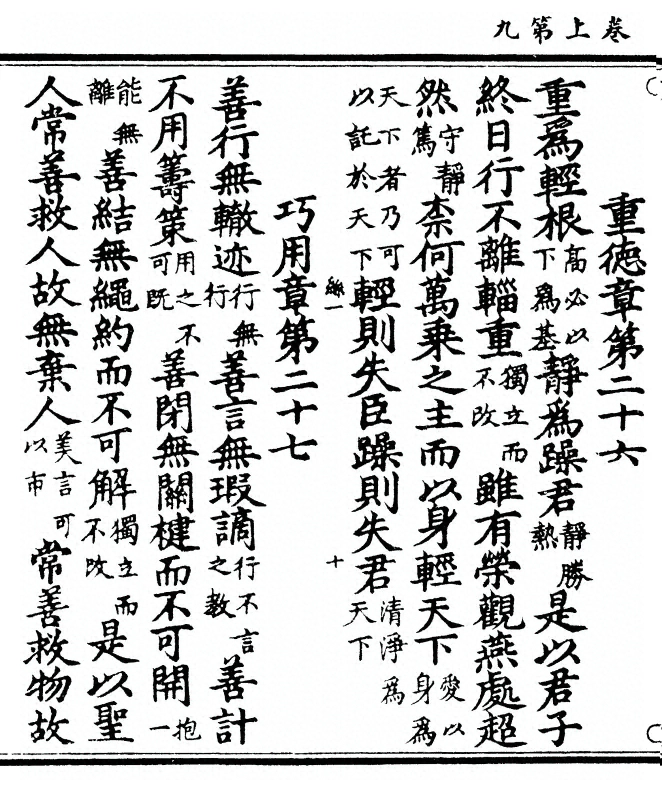 卷上第九
重德章第二十六
重爲輕根高必以下爲基靜爲躁君靜勝熱是以君子
終日行不離輜重獨立而不改雖有榮觀燕處超
然守靜篤柰何萬乘之主而以身輕天下愛以身爲
天下者乃可以託於天下輕則失臣躁則失君清淨爲天下
一
十
巧用章第二十七
善行無轍迹行無行善言無瑕謫行不言之教善計
不用籌策用之不可既善閉無關楗而不可開抱一
能無離善結無繩約而不可解獨立而不改是以聖
人常善救人故無棄人美言可以市常善救物故